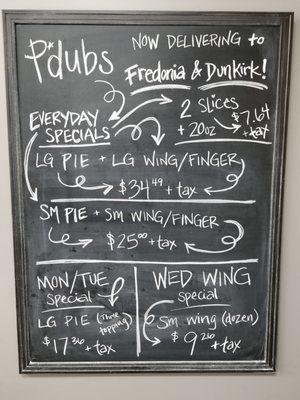 P*dubs
NOW DELIVERING to
Fredonia & Dunkirk!
EVERYDAY
SPECIALS
2 Slices
+ 20oz
$7.64
+ tax
LG PIE + LG WING/FINGER
$34.49 + tax
SM PIE + Sm WING/FINGER
$25.00 + tax
MON/TUE
Special
LG PIE (Three
topping)
$17.36 + tax
WED WING
Special
Sm wing (dozen)
$9.26 + tax